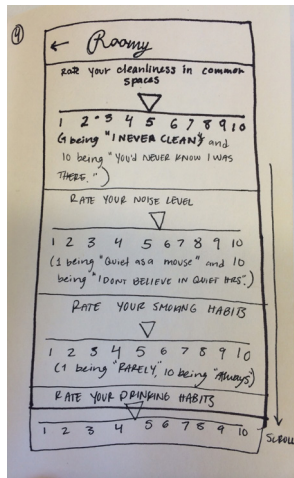 4
← Roomy
RATE your cleanliness in common
spaces
1 2 3 4 5 6 7 8 9 10
(1 being "I NEVER CLEAN" and
10 being "YOU'D NEVER KNOW I WAS
THERE.")
RATE YOUR NOISE LEVEL
1 2 3 4 5 6 7 8 9 10
(1 being "Quiet as a mouse" and 10
being "I DONT BELIEVE IN QUIET HRS".)
RATE YOUR SMOKING HABITS
1 2 3 4 5 6 7 8 9 10
(1 being "RARELY," 10 being "Always")
RATE YOUR DRINKING HABITS
1 2 3 4 5 6 7 8 9 10
SCROLL